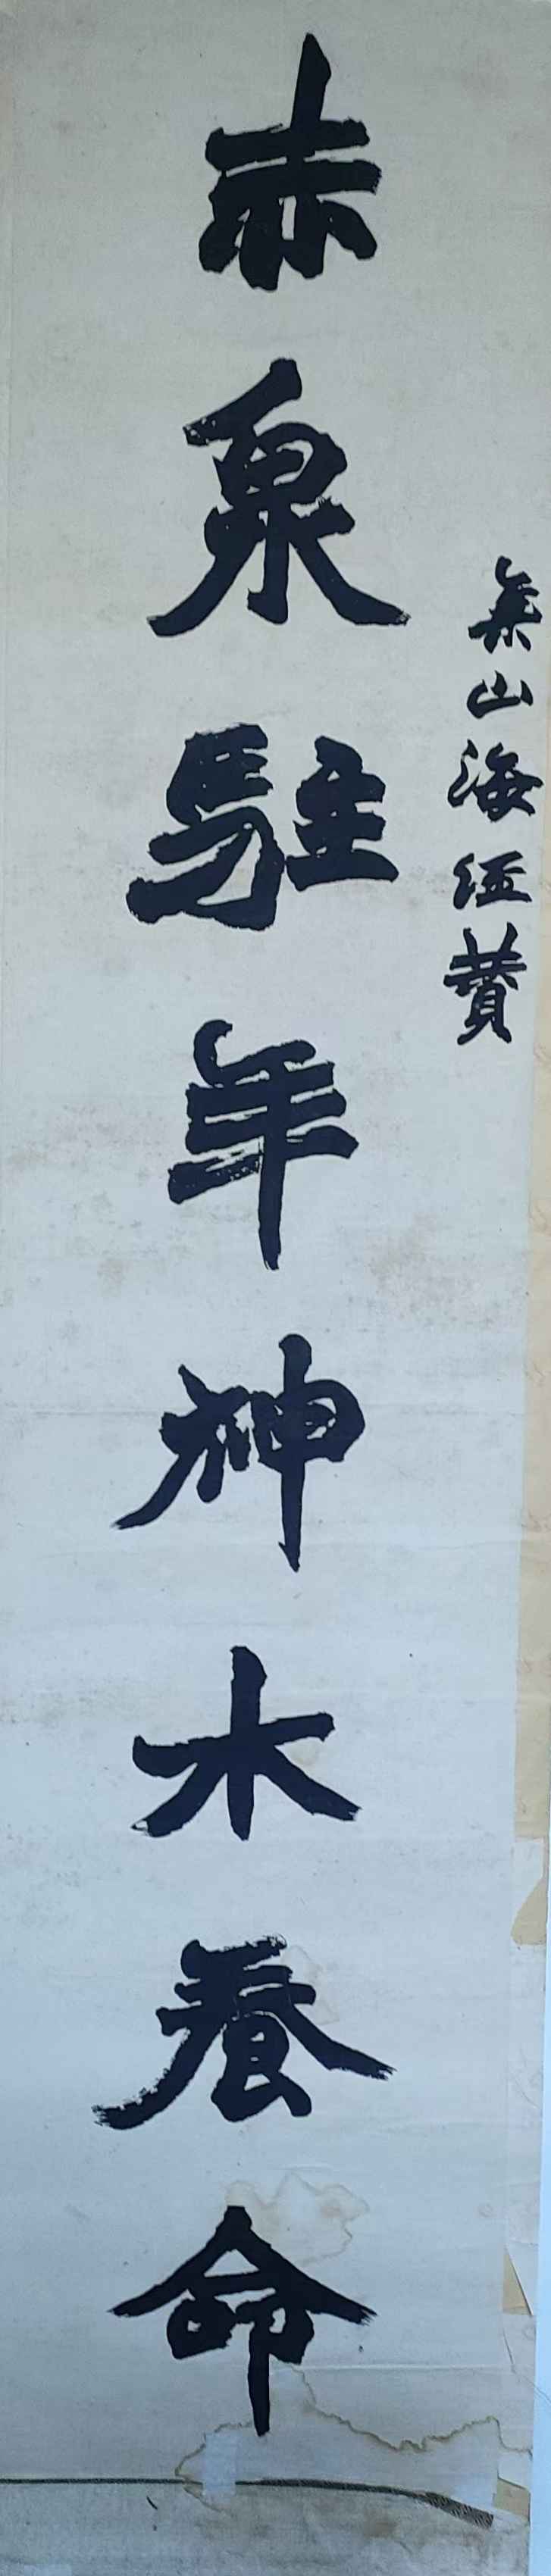 集山海经赞
赤泉駐年神木養命